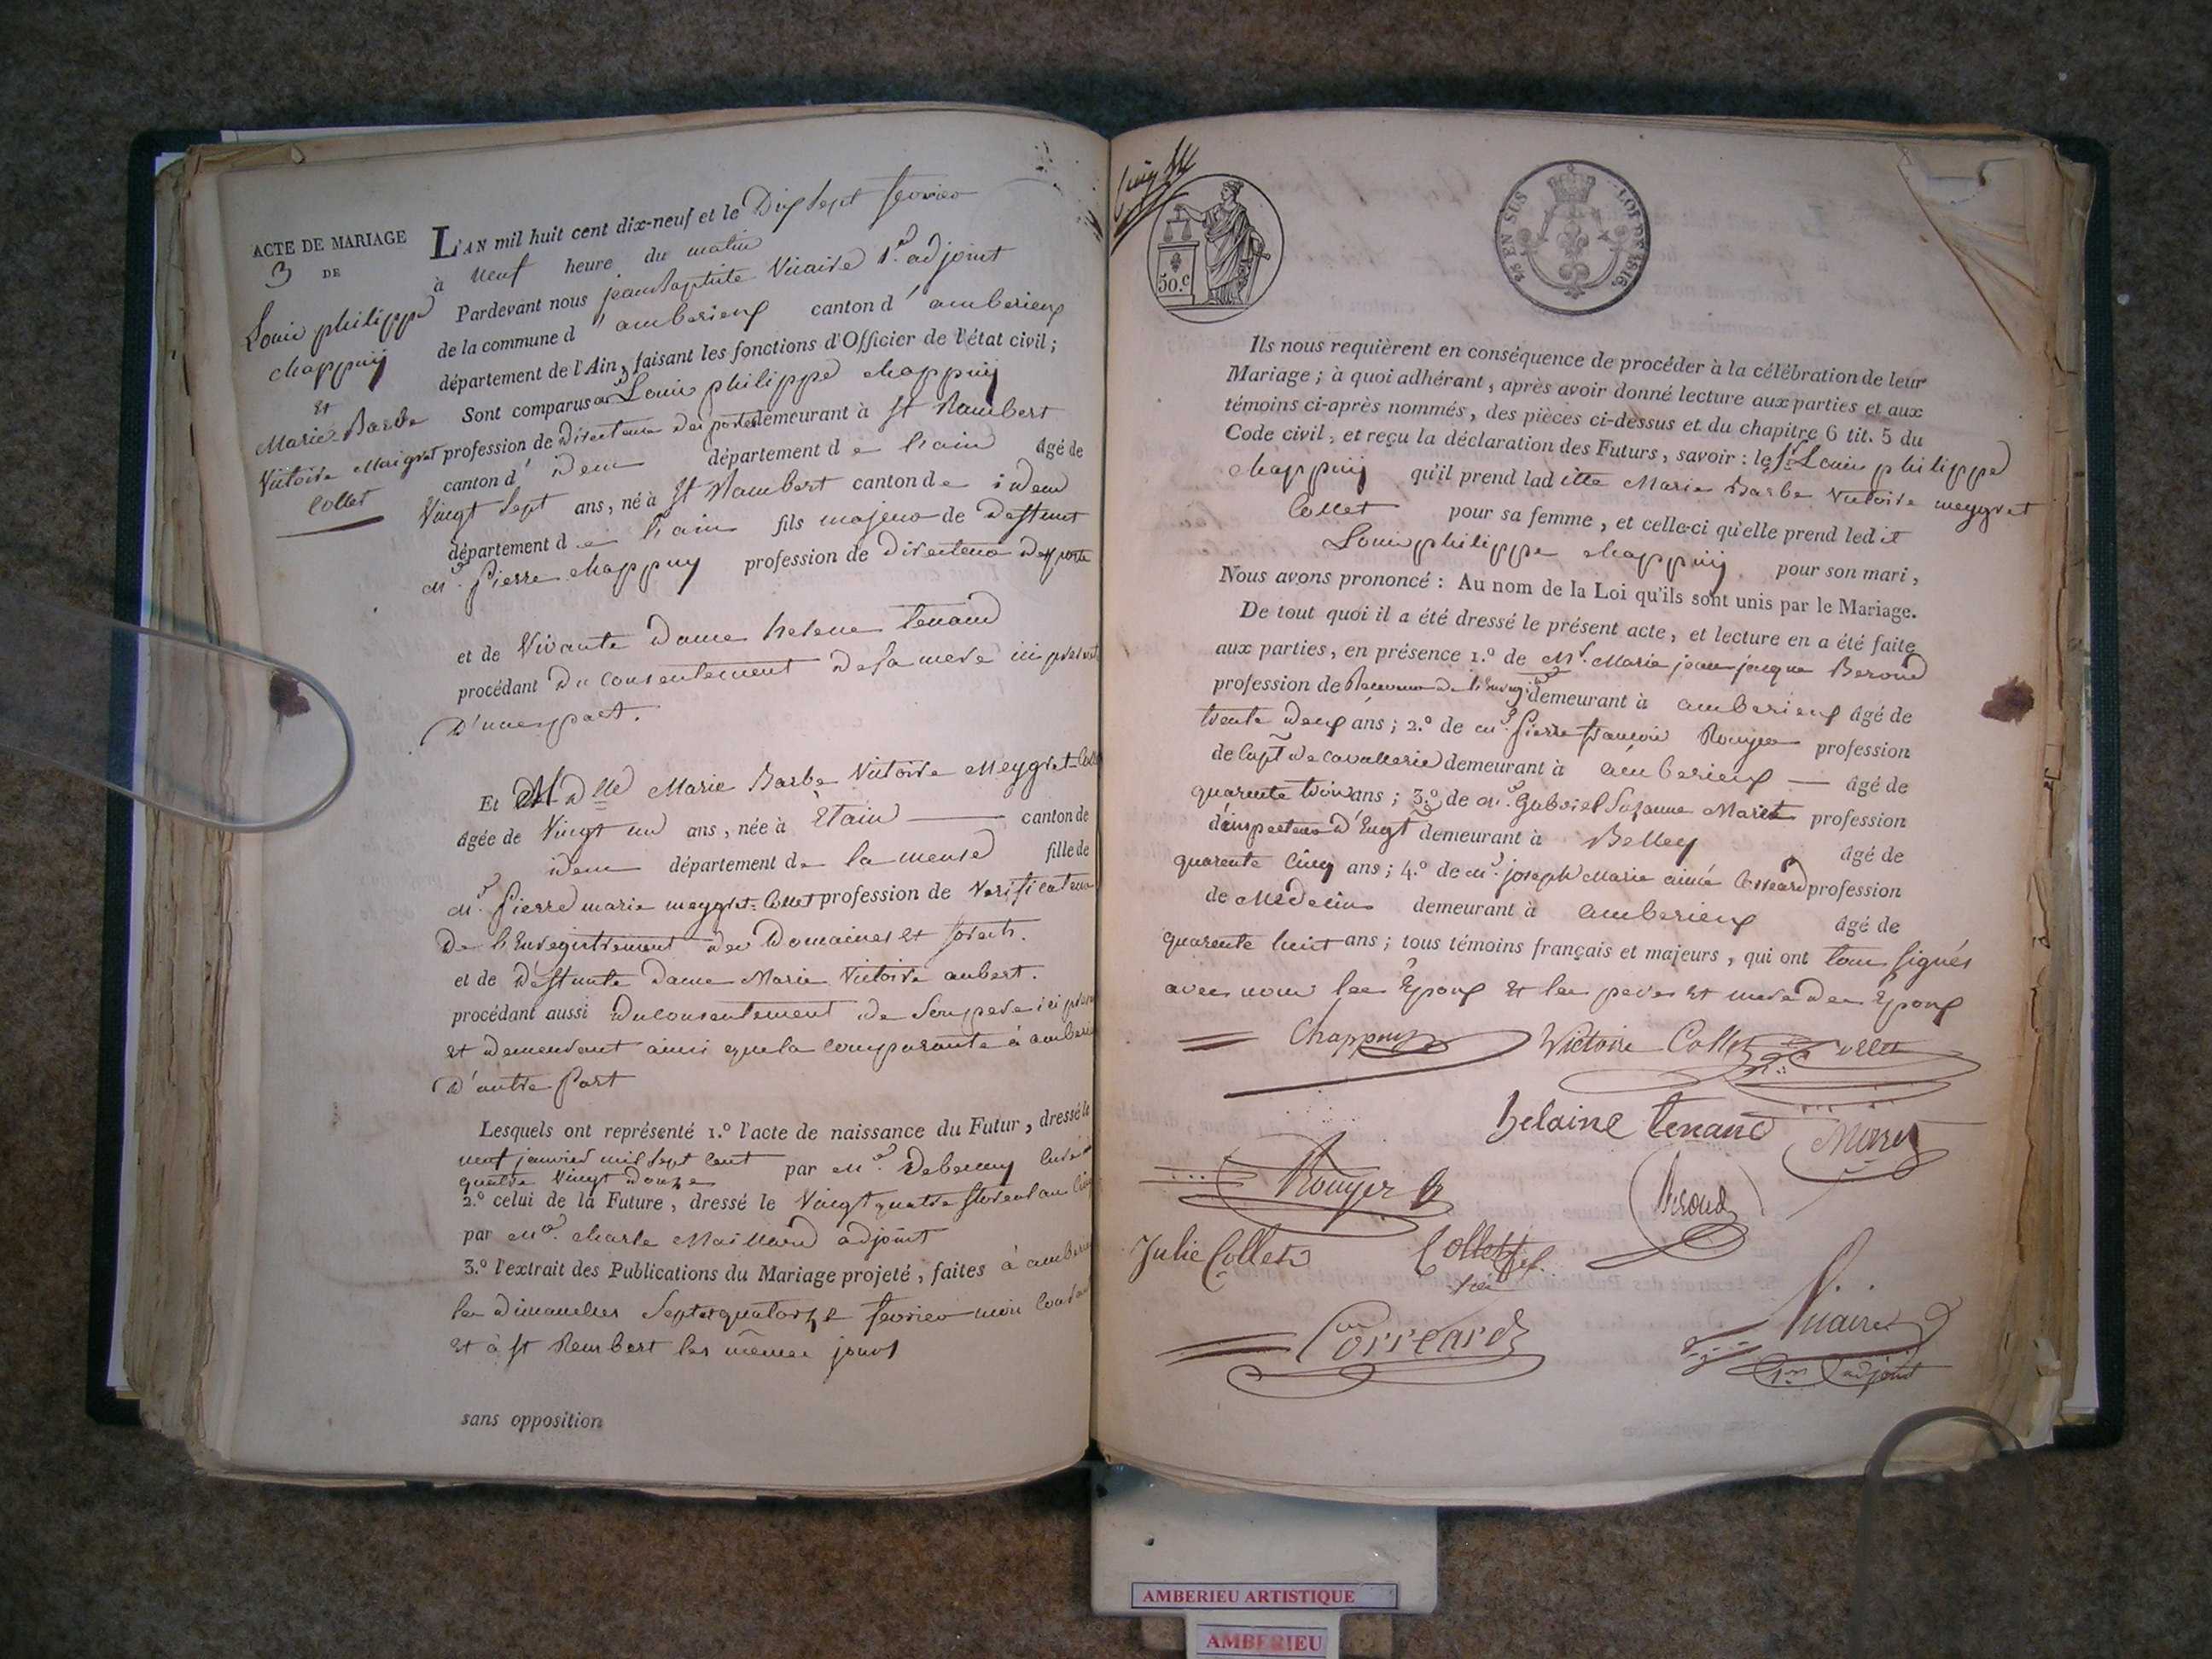 ACTE DE MARIAGE
3 DE
Louis philippe
chappuij
et
Marie Barbe
Victoire Meigret
Collet
L'AN mil huit cent dix-neuf et le Dix Sept fevrier
à neuf heure du matin
Pardevant nous jean baptiste Vicaire 1.er adjoint
de la commune d'amberieux canton d'amberieux
département de l'Ain, faisant les fonctions d'Officier de l'état civil;
Sont comparus Louis philippe chappuij
profession de Directeur des postes demeurant à St Rambert
canton d'idem département de l'ain âgé de
Vingt Sept ans, né à St Rambert canton de idem
département de l'ain fils majeur de Deffunt
Mr. Pierre chappuy profession de Directeur des poste
et de Vivante Dame helene tenand
procédant du Consentement de sa mere ici presente
D'une part.
Et Dlle Marie Barbe Victoire Meygret-Collet
âgée de Vingt un ans, née à Etain canton de
idem département de la meuse fille de
Mr. Pierre marie meygret-Collet profession de Verificateur
De l'Enregistrement des Domaines et forets.
et de deffunte Dame Marie Victoire aubert.
procédant aussi du consentement de Son pere ici présent
et demeurant ainsi que la comparante à amberieux
D'autre Part
Lesquels ont représenté 1.º l'acte de naissance du Futur, dressé le
neuf janvier mil sept cent par Mr. Debeney Curé
quatre Vingt Douze
2.º celui de la Future, dressé le Vingt quatre floreal an Cinq
par Mr. charle Maillard adjoint
3.º l'extrait des Publications du Mariage projeté, faites à amberieux
les dimanches Sept et quatorze fevrier mois Courant
et à St Rambert les mêmes jours
sans opposition
50.C
25 EN SUS
LOI DE 1816
Ils nous requièrent en conséquence de procéder à la célébration de leur
Mariage; à quoi adhérant, après avoir donné lecture aux parties et aux
témoins ci-après nommés, des pièces ci-dessus et du chapitre 6 tit. 5 du
Code civil, et reçu la déclaration des Futurs, savoir: le Sr Louis philippe
chappuij qu'il prend ladite Marie Barbe Victoire meygret
Collet pour sa femme, et celle-ci qu'elle prend ledit
Louis philippe chappuij pour son mari,
Nous avons prononcé: Au nom de la Loi qu'ils sont unis par le Mariage.
De tout quoi il a été dressé le présent acte, et lecture en a été faite
aux parties, en présence 1.º de Mr. Marie jean jacque Beroud
profession de Receveur de l'Enregt demeurant à amberieux âgé de
trente deux ans; 2.º de Mr. Pierre francois Rouyer profession
de Capt de Cavallerie demeurant à amberieux âgé de
quarente trois ans; 3.º de Mr. Gabriel Suzanne Maret profession
d'inspecteur d'Engt demeurant à Belley âgé de
quarente Cinq ans; 4.º de Mr. joseph Marie aimé Correard profession
de Médecin demeurant à amberieux âgé de
quarente huit ans; tous témoins français et majeurs, qui ont tous signés
avec nous les Epoux et les peres et mere des Epoux
Chappuy Victoire Collet Collet
helaine tenand Maret
Rouyer Beroud
Julie Collet Collet
Correard Vicaire
1er adjoint
AMBERIEU ARTISTIQUE
AMBERIEU